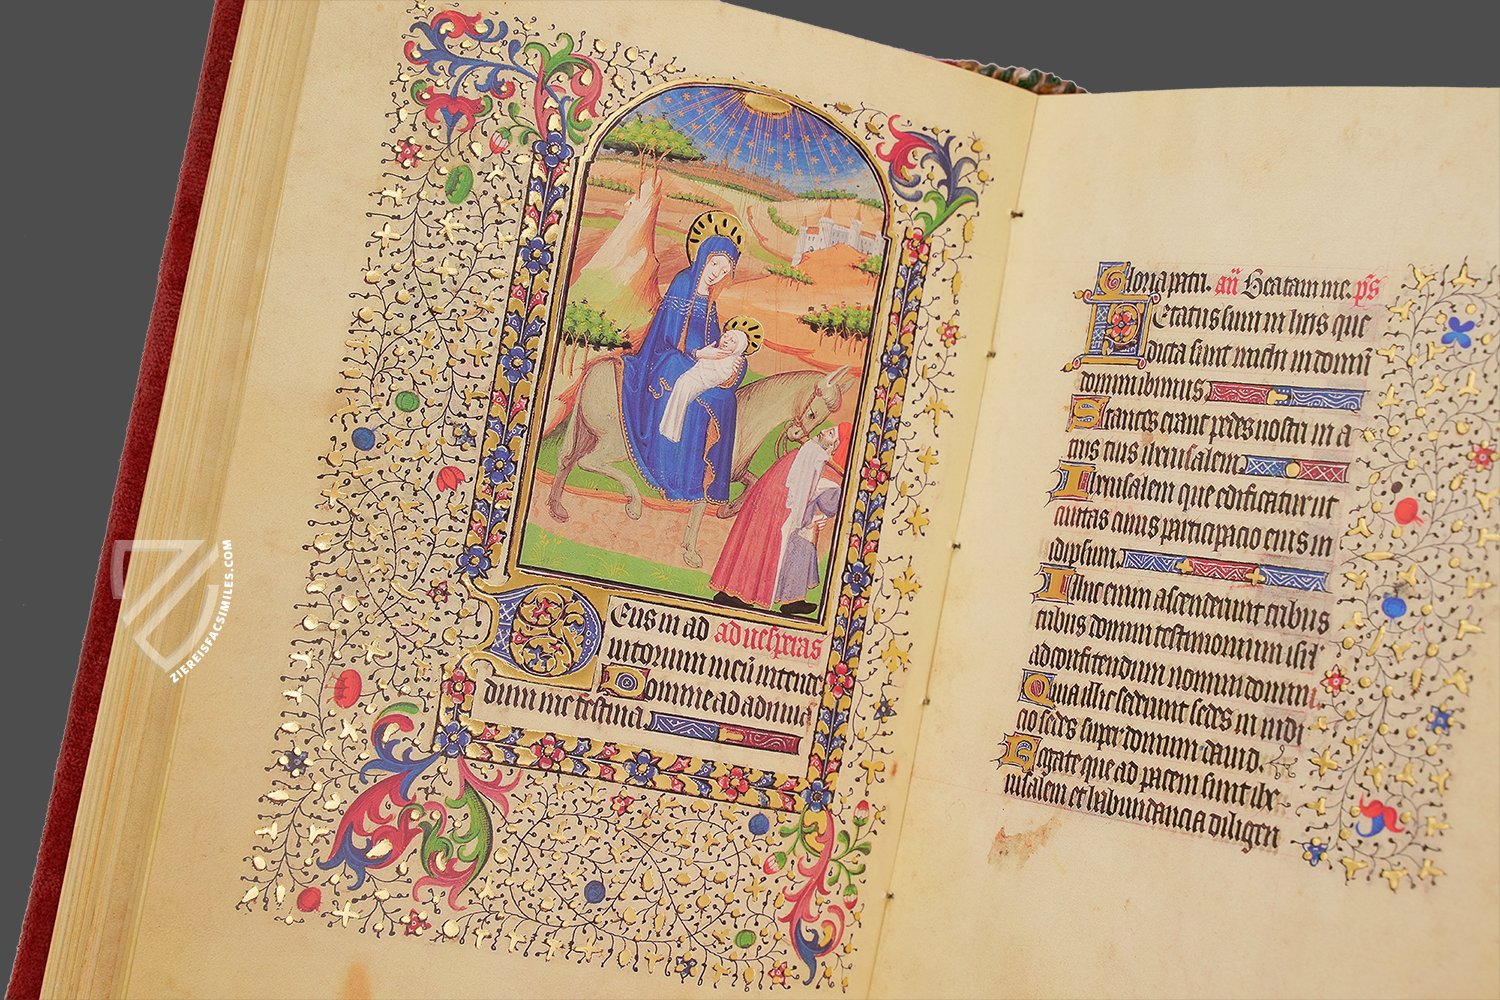 Eus in ad ad uesperas
iutorium meū intende
Domine ad adiuuā
dum me festina
Gloria patri. añ Beatam me. p̄s
Letatus sum in hiis que
dicta sunt michi in domū
domini ibimus
Stantes erant pedes nostri in a
triis tuis iherusalem
Iherusalem que edificatur ut
ciuitas cuius participacio eius in
idipsum
Illuc enim ascenderunt tribus
tribus domini testimonium isrl
ad confitendum nomini domini
Quia illic sederunt sedes in iudi
cio sedes super domum dauid.
Rogate que ad pacem sunt ihe
rusalem et habundancia diligen
ZIEREISFACSIMILES.COM